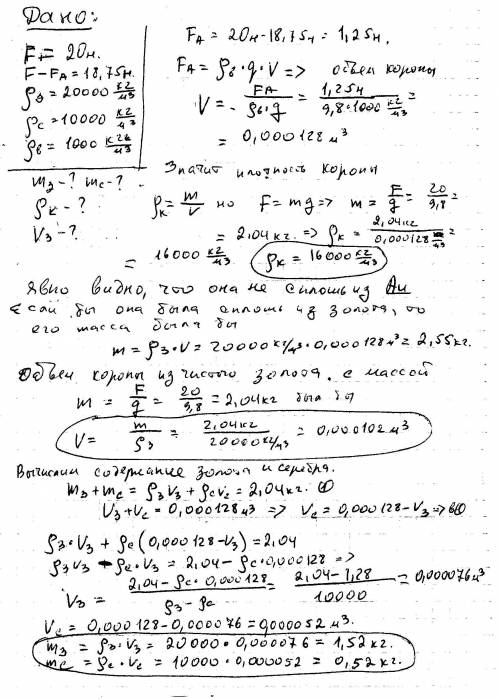 Дано:
F = 20н.
F - FA = 18,75н.
ρз = 20000 кг/м³
ρс = 10000 кг/м³
ρв = 1000 кг/м³
mз - ? mс - ?
ρк - ?
Vз - ?
FA = 20н - 18,75н = 1,25н.
FA = ρв · g · V => объем короны
V = FA / ρв·g = 1,25н / 9,8·1000 кг/м³ =
= 0,000128 м³
Значит плотность короны
ρк = m/V но F = mg => m = F/g = 20/9,8 =
= 2,04кг. => ρк = 2,04кг / 0,000128 м³ =
= 16000 кг/м³ ρк = 16000 кг/м³
Явно видно, что она не сплошь из Au
Если бы она была сплошь из золота, то
его масса была бы
m = ρз · V = 20000 кг/м³ · 0,000128 м³ = 2,55кг.
Объем короны из чистого золота. с массой
m = F/g = 20/9,8 = 2,04кг был бы
V = m/ρз = 2,04кг / 20000 кг/м³ = 0,000102 м³
Вычислим содержание золота и серебра.
mз + mс = ρзVз + ρсVс = 2,04кг.
Vз + Vс = 0,000128 м³ => Vс = 0,000128 - Vз =>
ρз · Vз + ρс (0,000128 - Vз) = 2,04
ρзVз - ρс · Vз = 2,04 - ρс · 0,000128 =>
Vз = 2,04 - ρс · 0,000128 / ρз - ρс = 2,04 - 1,28 / 10000 = 0,000076 м³
Vс = 0,000128 - 0,000076 = 0,000052 м³.
mз = ρз · Vз = 20000 · 0,000076 = 1,52 кг.
mс = ρс · Vс = 10000 · 0,000052 = 0,52 кг.